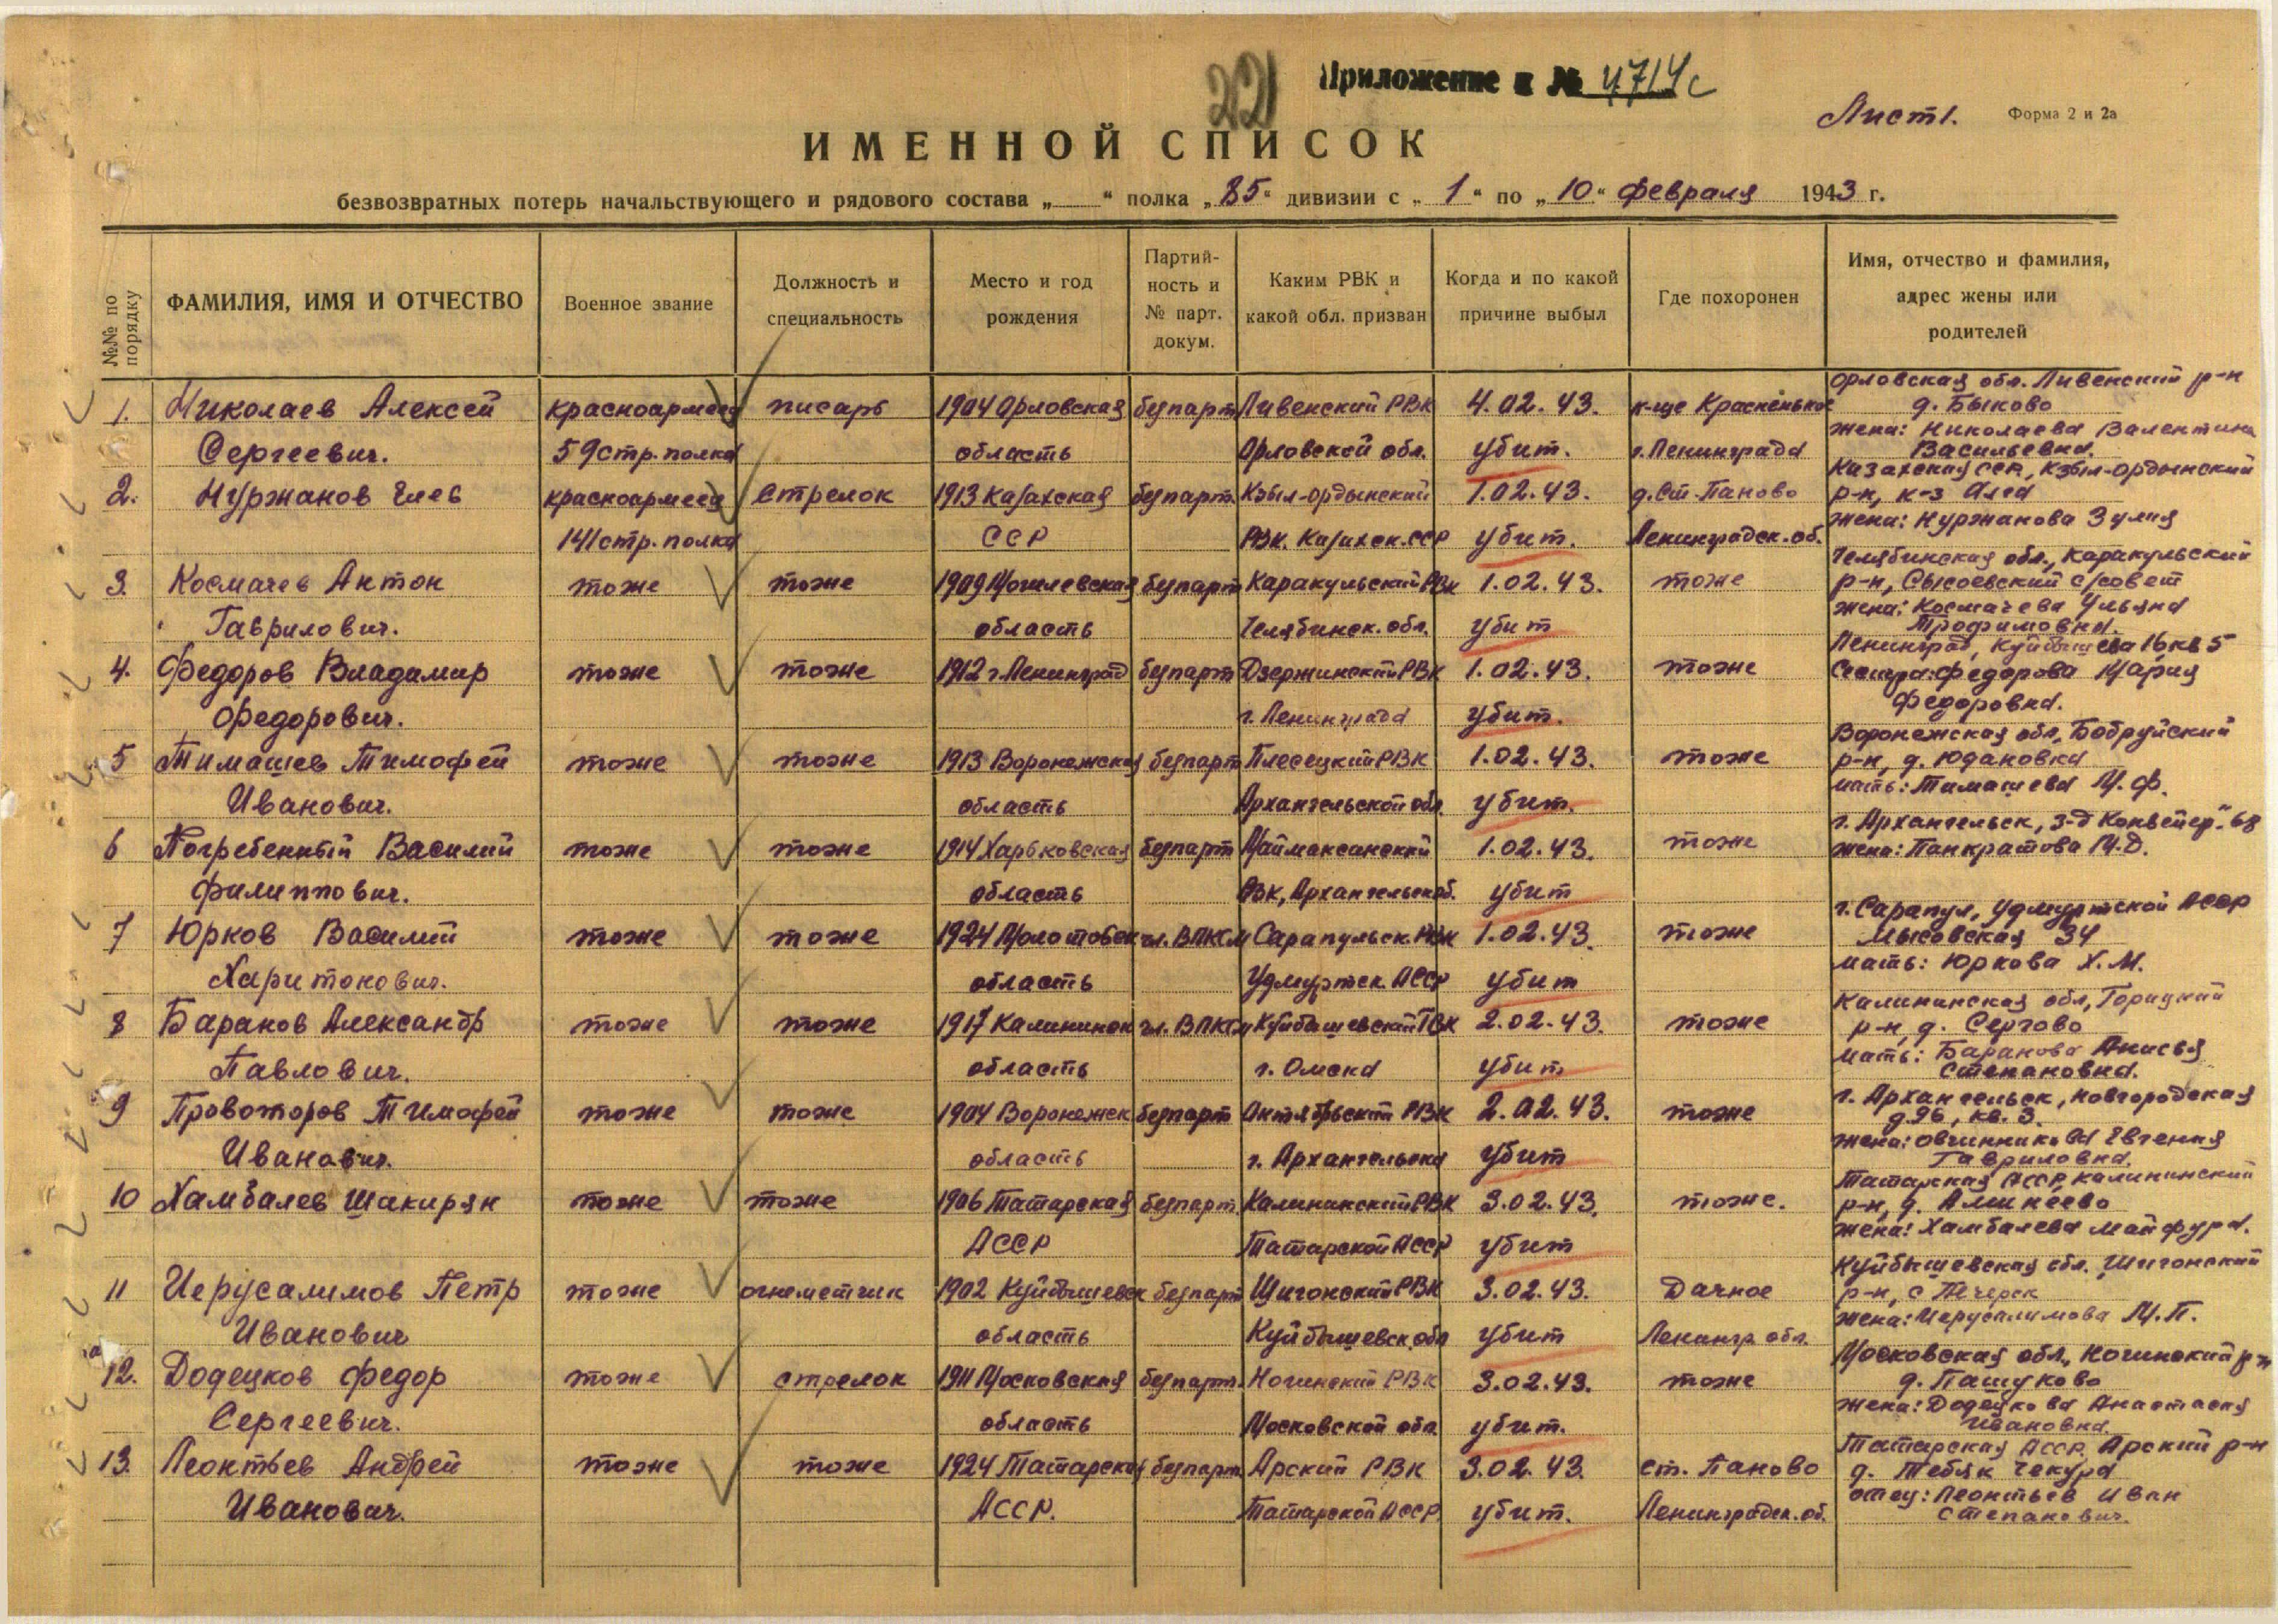 221
Приложение к № 4714с
Лист 1. Форма 2 и 2а
ИМЕННОЙ СПИСОК
безвозвратных потерь начальствующего и рядового состава „ “ полка „85“ дивизии с „1“ по „10“ февраля 1943 г.
№№ по порядку
ФАМИЛИЯ, ИМЯ И ОТЧЕСТВО
Военное звание
Должность и специальность
Место и год рождения
Партийность и № парт. докум.
Каким РВК и какой обл. призван
Когда и по какой причине выбыл
Где похоронен
Имя, отчество и фамилия, адрес жены или родителей
1. Николаев Алексей красноармеец писарь 1904 Орловская беспарт Ливенский РВК 4.02.43. к-ще Красненькое Орловская обл. Ливенский р-н д. Быково
Сергеевич. 59 стр. полка область Орловской обл. убит. г. Ленинграда жена: Николаева Валентина Васильевна.
2. Нуржанов красноармеец стрелок 1913 Казахская беспарт. Кзыл-ордынский 1.02.43. д. Ст.-Паново Казахская ССР, Кзыл-ордынский р-н, к-з
141 стр. полка ССР РВК. Казахск. ССР убит. Ленинградск. об. жена: Нуржанова Зулия
3. Космачев Антон тоже тоже 1909 Могилевская беспарт Каракульский РВК 1.02.43. тоже Челябинская обл., Каракульский р-н, Сысоевский с/совет
Гаврилович. область Челябинск. обл. убит жена: Космачева Ульяна Трофимовна.
4. Федоров Владимир тоже тоже 1912 г. Ленинград беспарт Дзержинский РВК 1.02.43. тоже Ленинград, Куйбышева 16 кв 5
Федорович. г. Ленинграда убит. Сестра: Федорова Мария Федоровна.
5 Тимашев Тимофей тоже тоже 1913 Воронежская беспарт Плесецкий РВК 1.02.43. тоже Воронежская обл, Бобруйский р-н, д. Юдановка
Иванович. область Архангельской обл. убит. мать: Тамашева М. Ф.
6 Погребенный Василий тоже тоже 1914 Харьковская беспарт Маймаксанский 1.02.43. тоже г. Архангельск, з-д Конвейер. 68
Филиппович. область РВК, Архангельск об. убит жена: Панкратова М. Д.
7 Юрков Василий тоже тоже 1924 Молотовск чл. ВЛКСМ Сарапульск. РВК 1.02.43. тоже г. Сарапул, Удмуртской АССР Мысовская 34
Харитонович. область Удмуртск АССР убит мать: Юркова Х. М.
8 Баранов Александр тоже тоже 1917 Калининск чл. ВЛКСМ Куйбышевский ГВК 2.02.43. тоже Калининская обл, Горицкий р-н, д. Сергово
Павлович. область г. Омска убит мать: Баранова Анисья Степановна.
9 Провоторов Тимофей тоже тоже 1904 Воронежск беспарт Октябрьский РВК 2.02.43. тоже г. Архангельск, Новгородская д. 96, кв. 3.
Иванович. область г. Архангельска убит жена: Овчинникова Евгения Гавриловна.
10 Хамбалев Шакирян тоже тоже 1906 Татарская беспарт. Калининский РВК 3.02.43. тоже. Татарская АССР, Калининский р-н, д. Аликеево
АССР Татарской АССР убит жена: Хамбалева Майфура.
11 Иерусалимов Петр тоже огнеметчик 1902 Куйбышевск беспарт Шигонский РВК 3.02.43. Дачное Куйбышевская обл. Шигонский р-н, с Печерск
Иванович область Куйбышевск. обл убит Ленингр. обл. жена: Иерусалимова М. П.
12. Додецков Федор тоже стрелок 1911 Московская беспарт. Ногинский РВК 3.02.43. тоже Московская обл., Ногинский р-н д. Пашуково
Сергеевич. область Московской обл убит. жена: Додецкова Анастасия Ивановна.
13. Леонтьев Андрей тоже тоже 1924 Татарская беспарт. Арский РВК 3.02.43. ст. Паново Татарская АССР, Арский р-н д. Тебяк Чекура
Иванович. АССР. Татарской АССР. убит. Ленинградск. об. отец: Леонтьев Иван Степанович.